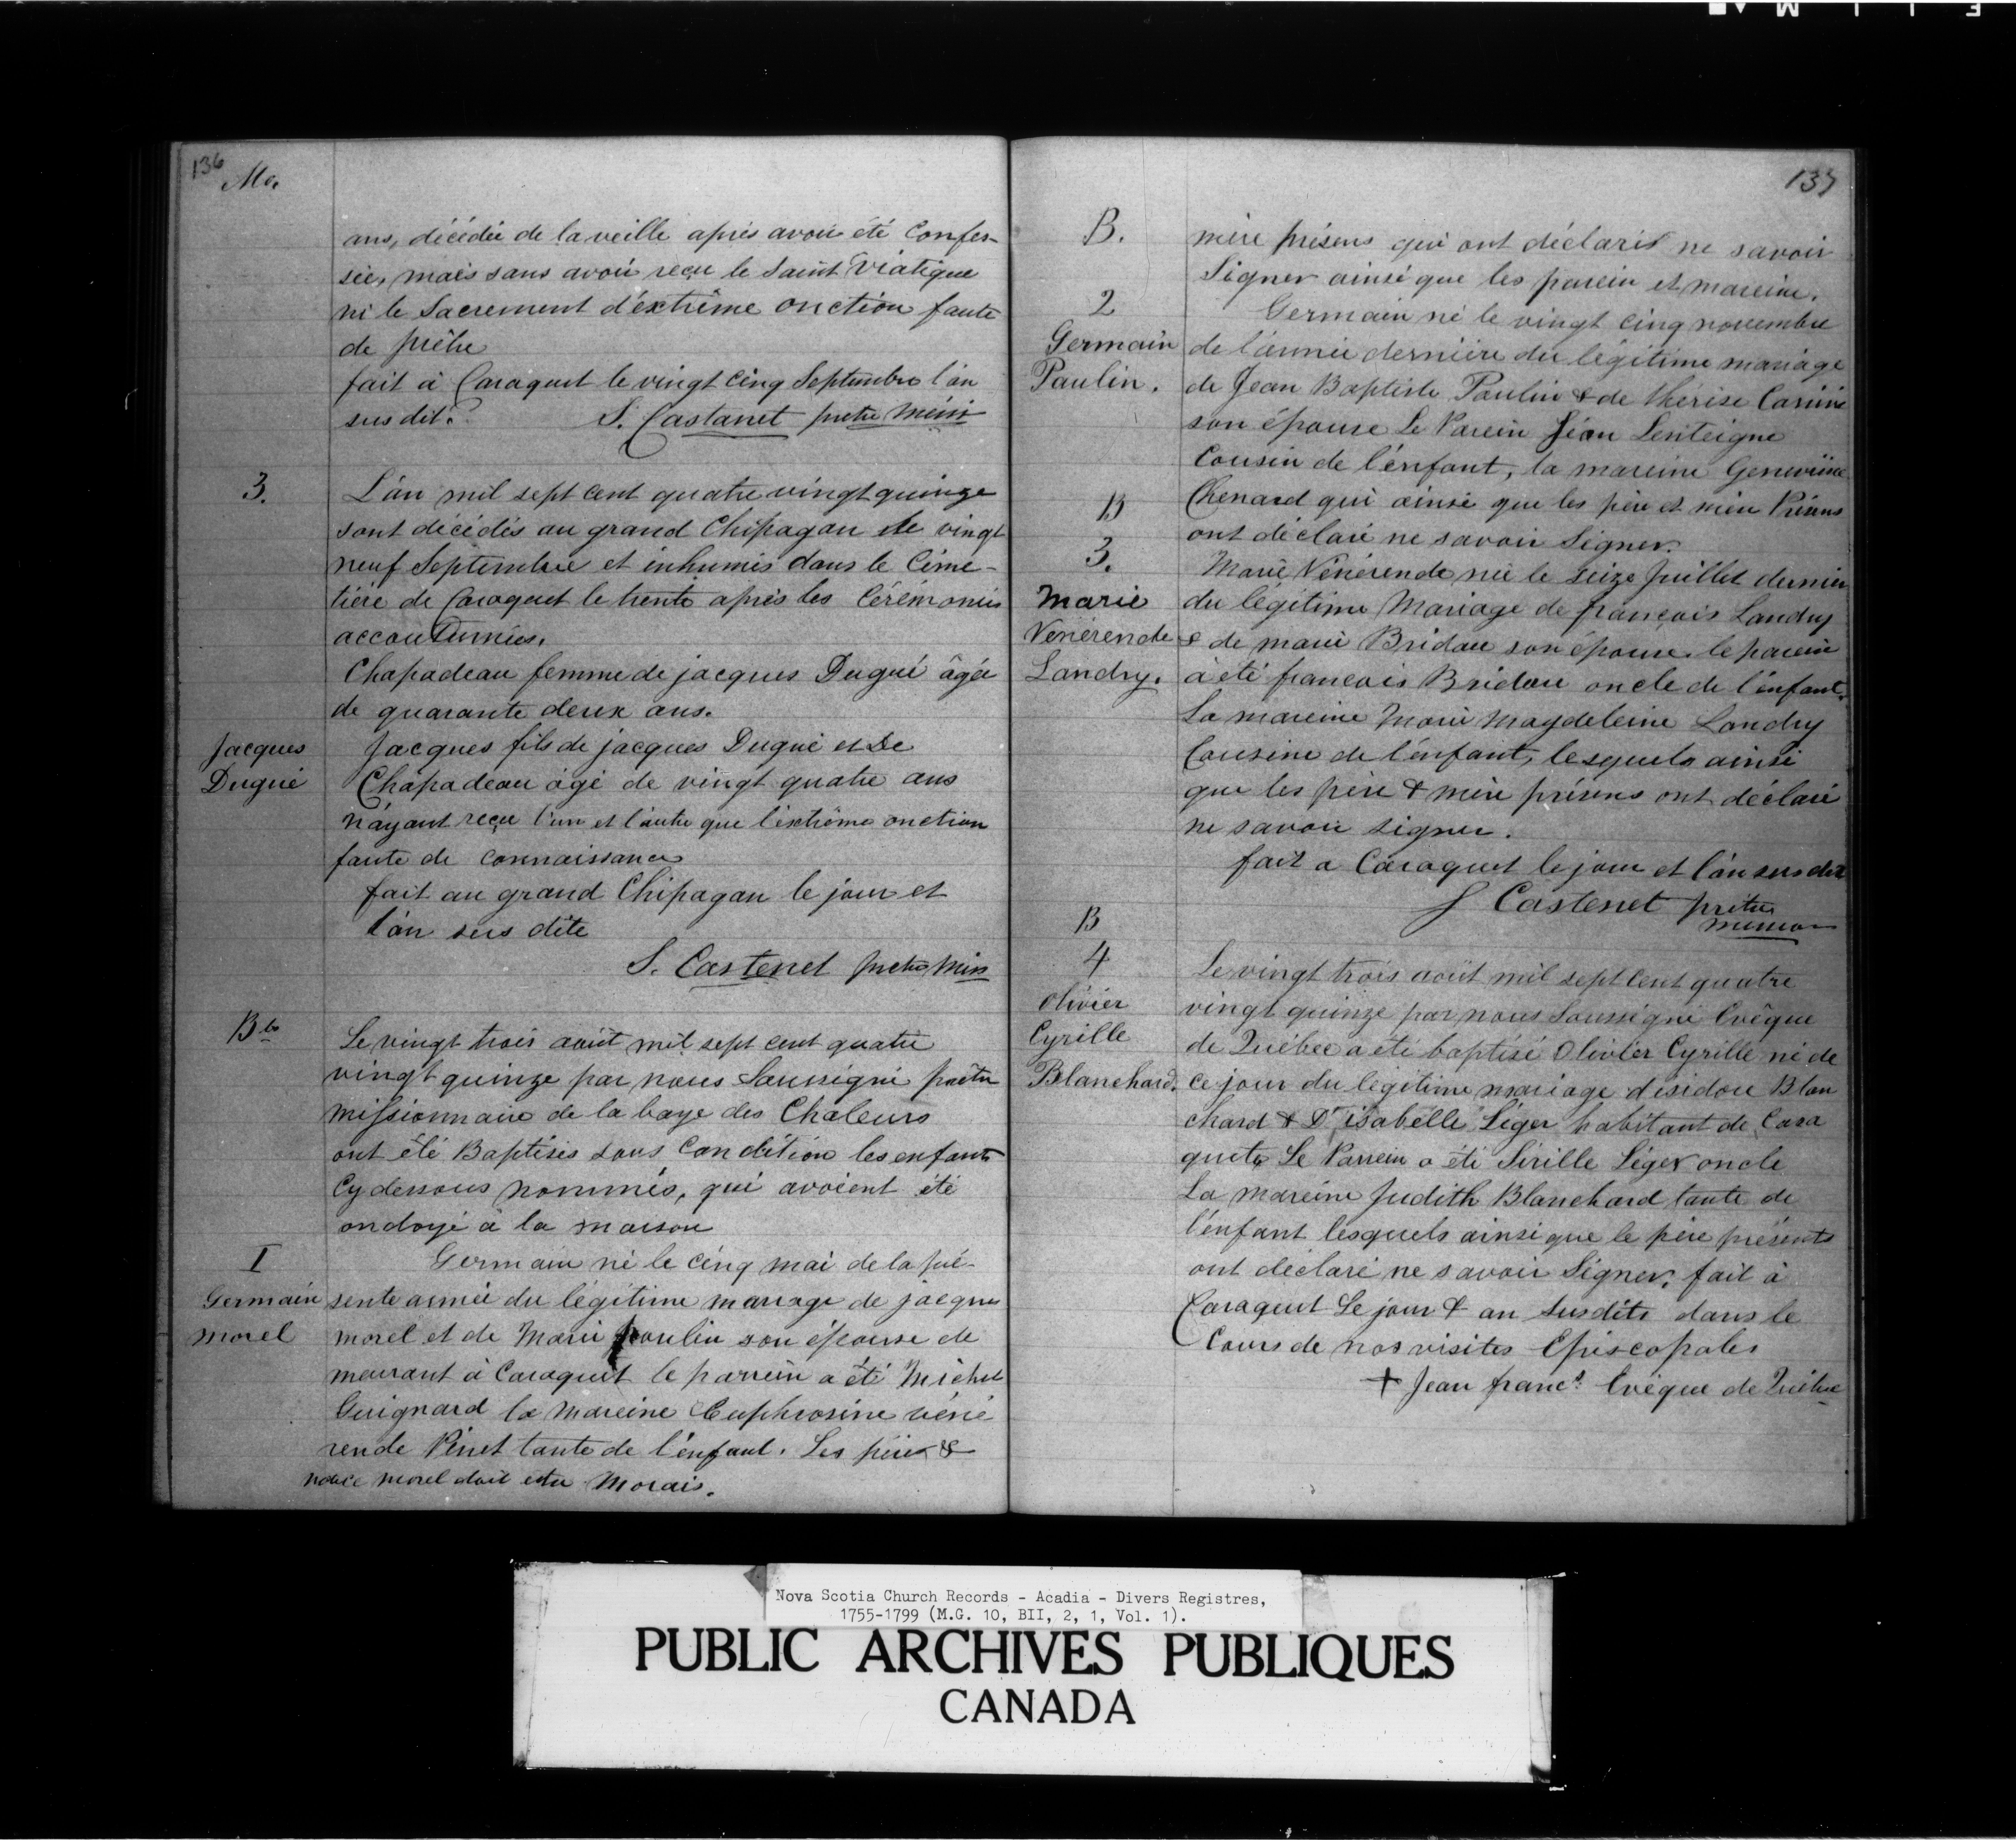 136
Mo.
ans, décédée de la veille après avoir été Confes-
sée, mais sans avoir reçu le Saint Viatique
ni le Sacrement d'extrême onction faute
de prêtre
fait à Caraquet le vingt cinq Septembre l'an
sus dit. S. Castanet pretre miss
3.
L'an mil sept cent quatre vingt quinze
sont décédés au grand Chipagan le vingt
neuf Septembre et inhumés dans le Cime-
tière de Caraquet le trente après les Cérémonies
accoutumées.
Chapadeau femme de jacques Dugué âgée
de quarante deux ans.
Jacques
Dugué
Jacques fils de jacques Dugué et De
Chapadeau âgé de vingt quatre ans
n'ayant reçu l'un et l'autre que l'extrême onction
faute de connaissance
fait au grand Chipagan le jour et
l'an sus dite
S. Castenet pretre miss
Bts
Le vingt trois août mil sept cent quatre
vingt quinze par nous Soussigné prêtre
missionnaire de la baye des Chaleurs
ont été Baptisés sous Condition les enfants
Cy dessous nommés, qui avoient été
ondoyé à la maison
I
Germain
morel
Germain né le cinq mai de la pré-
sente année du légitime mariage de jacques
morel et de Marie poulin son épouse de
meurant à Caraquet le parrein a été Michel
Guignard la Mareine Euphrosine véné
rende Pinet tante de l'enfant. Les père &
notice morel doit etre Morais.
137
B.
mère présens qui ont déclaré ne savoir
Signer ainsi que les parein et mareine.
2
Germain
Paulin.
Germain né le vingt cinq novembre
de l'année dernière du légitime mariage
de Jean Baptiste Paulin & de thérèse
son épouse Le Parein Jean Lenteigne
Cousin de l'enfant, la mareine Geneviève
Chenard qui ainsi que les père et mère Présens
ont déclaré ne savoir Signer.
B
3.
Marie
Vénérende
Landry.
Marie Vénérende née le seize Juillet dernier
du légitime Mariage de françois Landry
& de marie Bridau son épouse le parein
à été francois Bridau oncle de l'enfant.
La mareine Marie Magdeleine Landry
Cousine de l'enfant, lesquels ainsi
que les père & mère présens ont déclaré
ne savoir signer.
fait a Caraquet le jour et l'an sus dit
S Castenet prêtre
mission
B
4
Olivier
Cyrille
Blanchard.
Le vingt trois août mil sept cent quatre
vingt quinze par nous Soussigné Evêque
de Québec a été baptisé Olivier Cyrille né de
ce jour du légitime mariage d'isidore Blan
chard & D'isabelle Léger habitant de Cara
quets Le Parrein a été Sirille Léger oncle
La mareine Judith Blanchard tante de
l'enfant lesquels ainsi que le père présents
ont déclaré ne savoir Signer, fait à
Caraquet Le jour & an susdits dans le
Cours de nos visites Episcopales
+ Jean francs. Evêque de Québec
Nova Scotia Church Records - Acadia - Divers Registres,
1755-1799 (M.G. 10, BII, 2, 1, Vol. 1).
PUBLIC ARCHIVES PUBLIQUES
CANADA